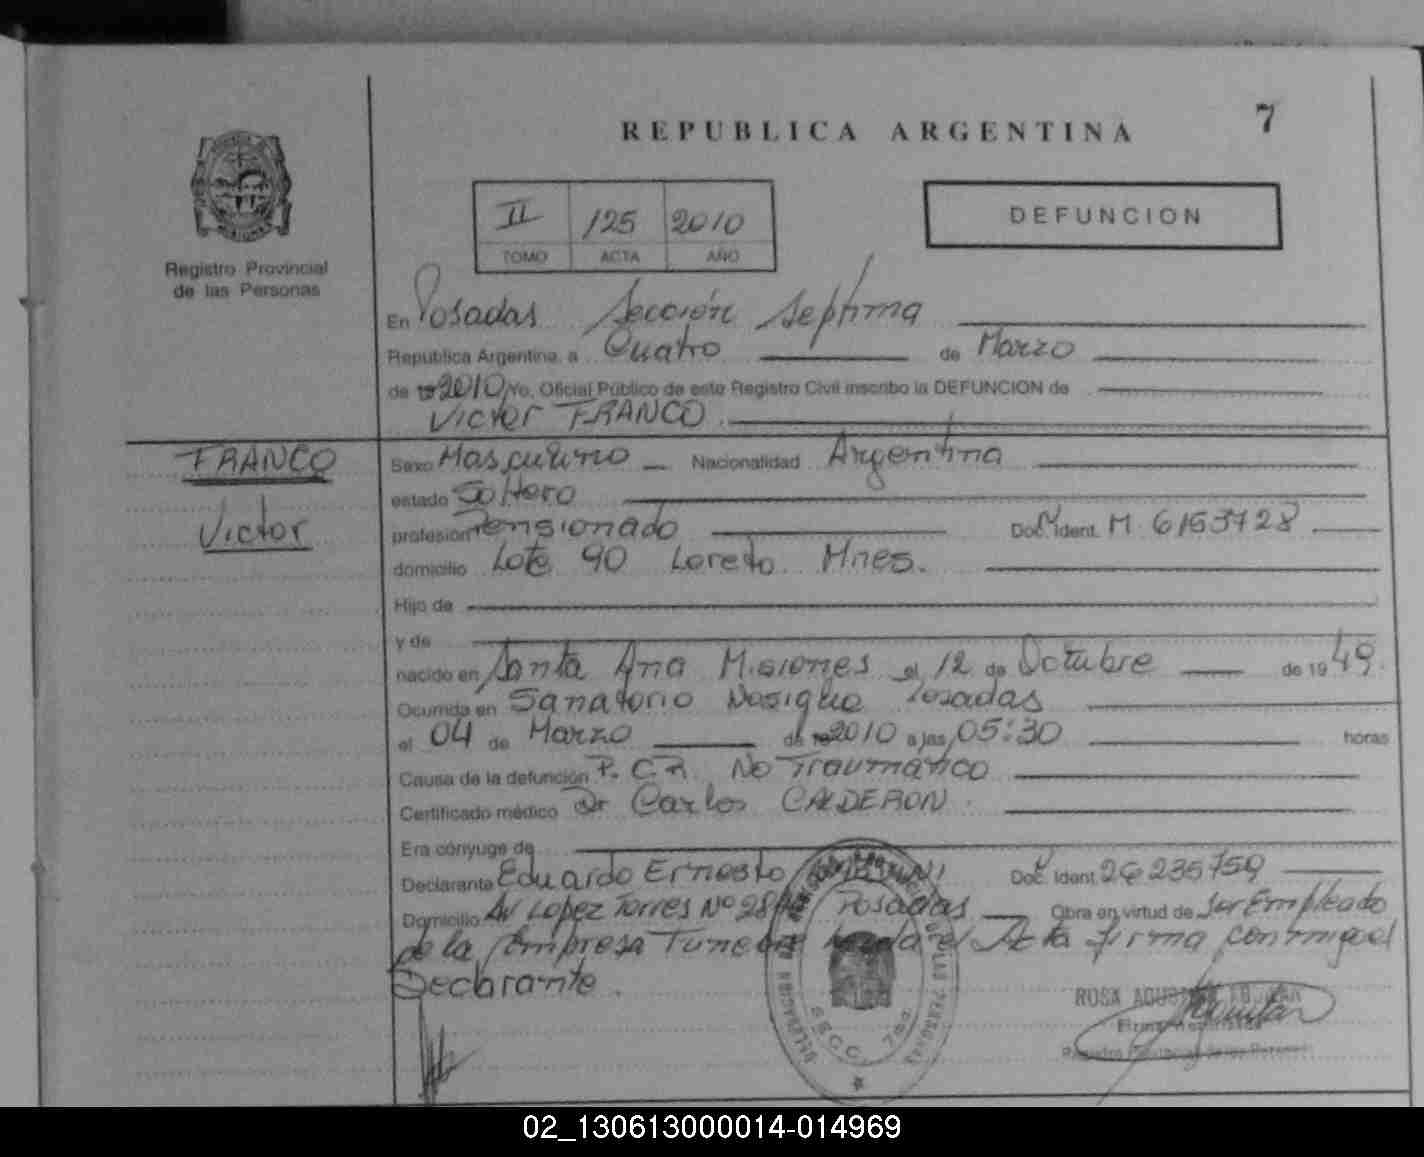 REPUBLICA ARGENTINA
7
II 125 2010
TOMO ACTA AÑO
DEFUNCION
Registro Provincial
de las Personas
En Posadas Sección Septima
Republica Argentina, a Cuatro de Marzo
de 2010 Yo, Oficial Público de este Registro Civil inscribo la DEFUNCION de
Victor FRANCO.
FRANCO
Victor
Sexo Masculino Nacionalidad Argentina
estado Soltero
profesión Pensionado Doc. Ident. M. 6153728
domicilio Lote 90 Loreto Mnes.
Hijo de
y de
nacido en Santa Ana Misiones el 12 de Octubre de 1949.
Ocurrida en Sanatorio Posadas
el 04 de Marzo de 2010 a las 05:30 horas
Causa de la defunción P.C.R. No Traumático
Certificado médico Dr Carlos CALDERON.
Era cónyuge de
Declarante Eduardo Ernesto Doc. Ident. 26235759
Domicilio Av Lopez Torres Nº Posadas Obra en virtud de ser Empleado
de la Empresa el Acta firma conmigo el
Declarante.
DELEGACION
SECC. 7ma.
DE LAS PERSONAS
ROSA
02_130613000014-014969